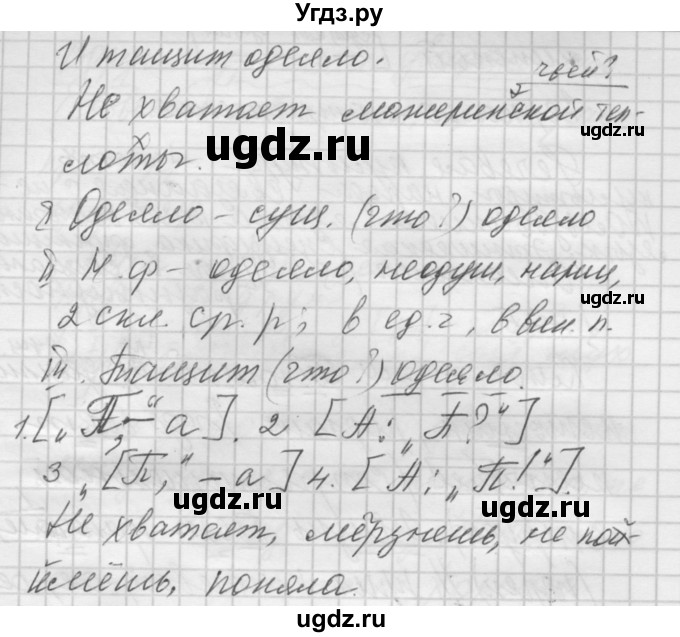 Угдз.ру
И тащит одеяло.
чьей?
Не хватает материнской теп-
лоты.
ugdz.ru
I Одеяло – сущ. (что?) одеяло
II Н.ф – одеяло, неодуш, нариц,
2 скл. ср. р; в ед.ч, в вин. п.
III. Тащит (что?) одеяло.
1. [„П,“ – а]. 2 [А: „П?“]
3 „[П,“ – а] 4. [А: „П!“].
ugdz.ru
Не хватает, мёрзнешь, не пой-
ймёшь, поняла.
Угдз.ру